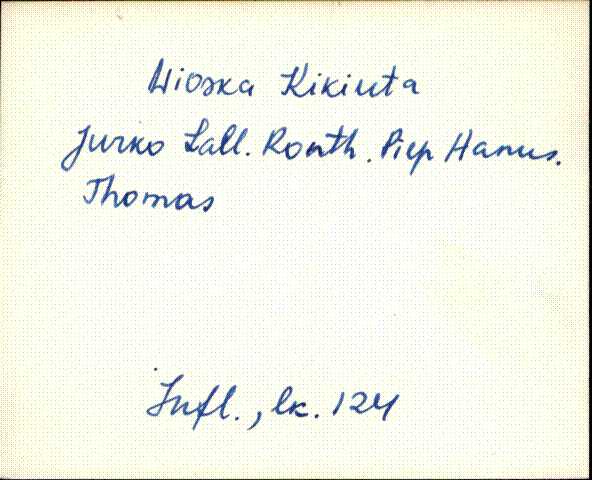 Wioska Kikiuta
Jurko Lall. Ronth. Piep Hanus.
Thomas
Infl., lk. 124